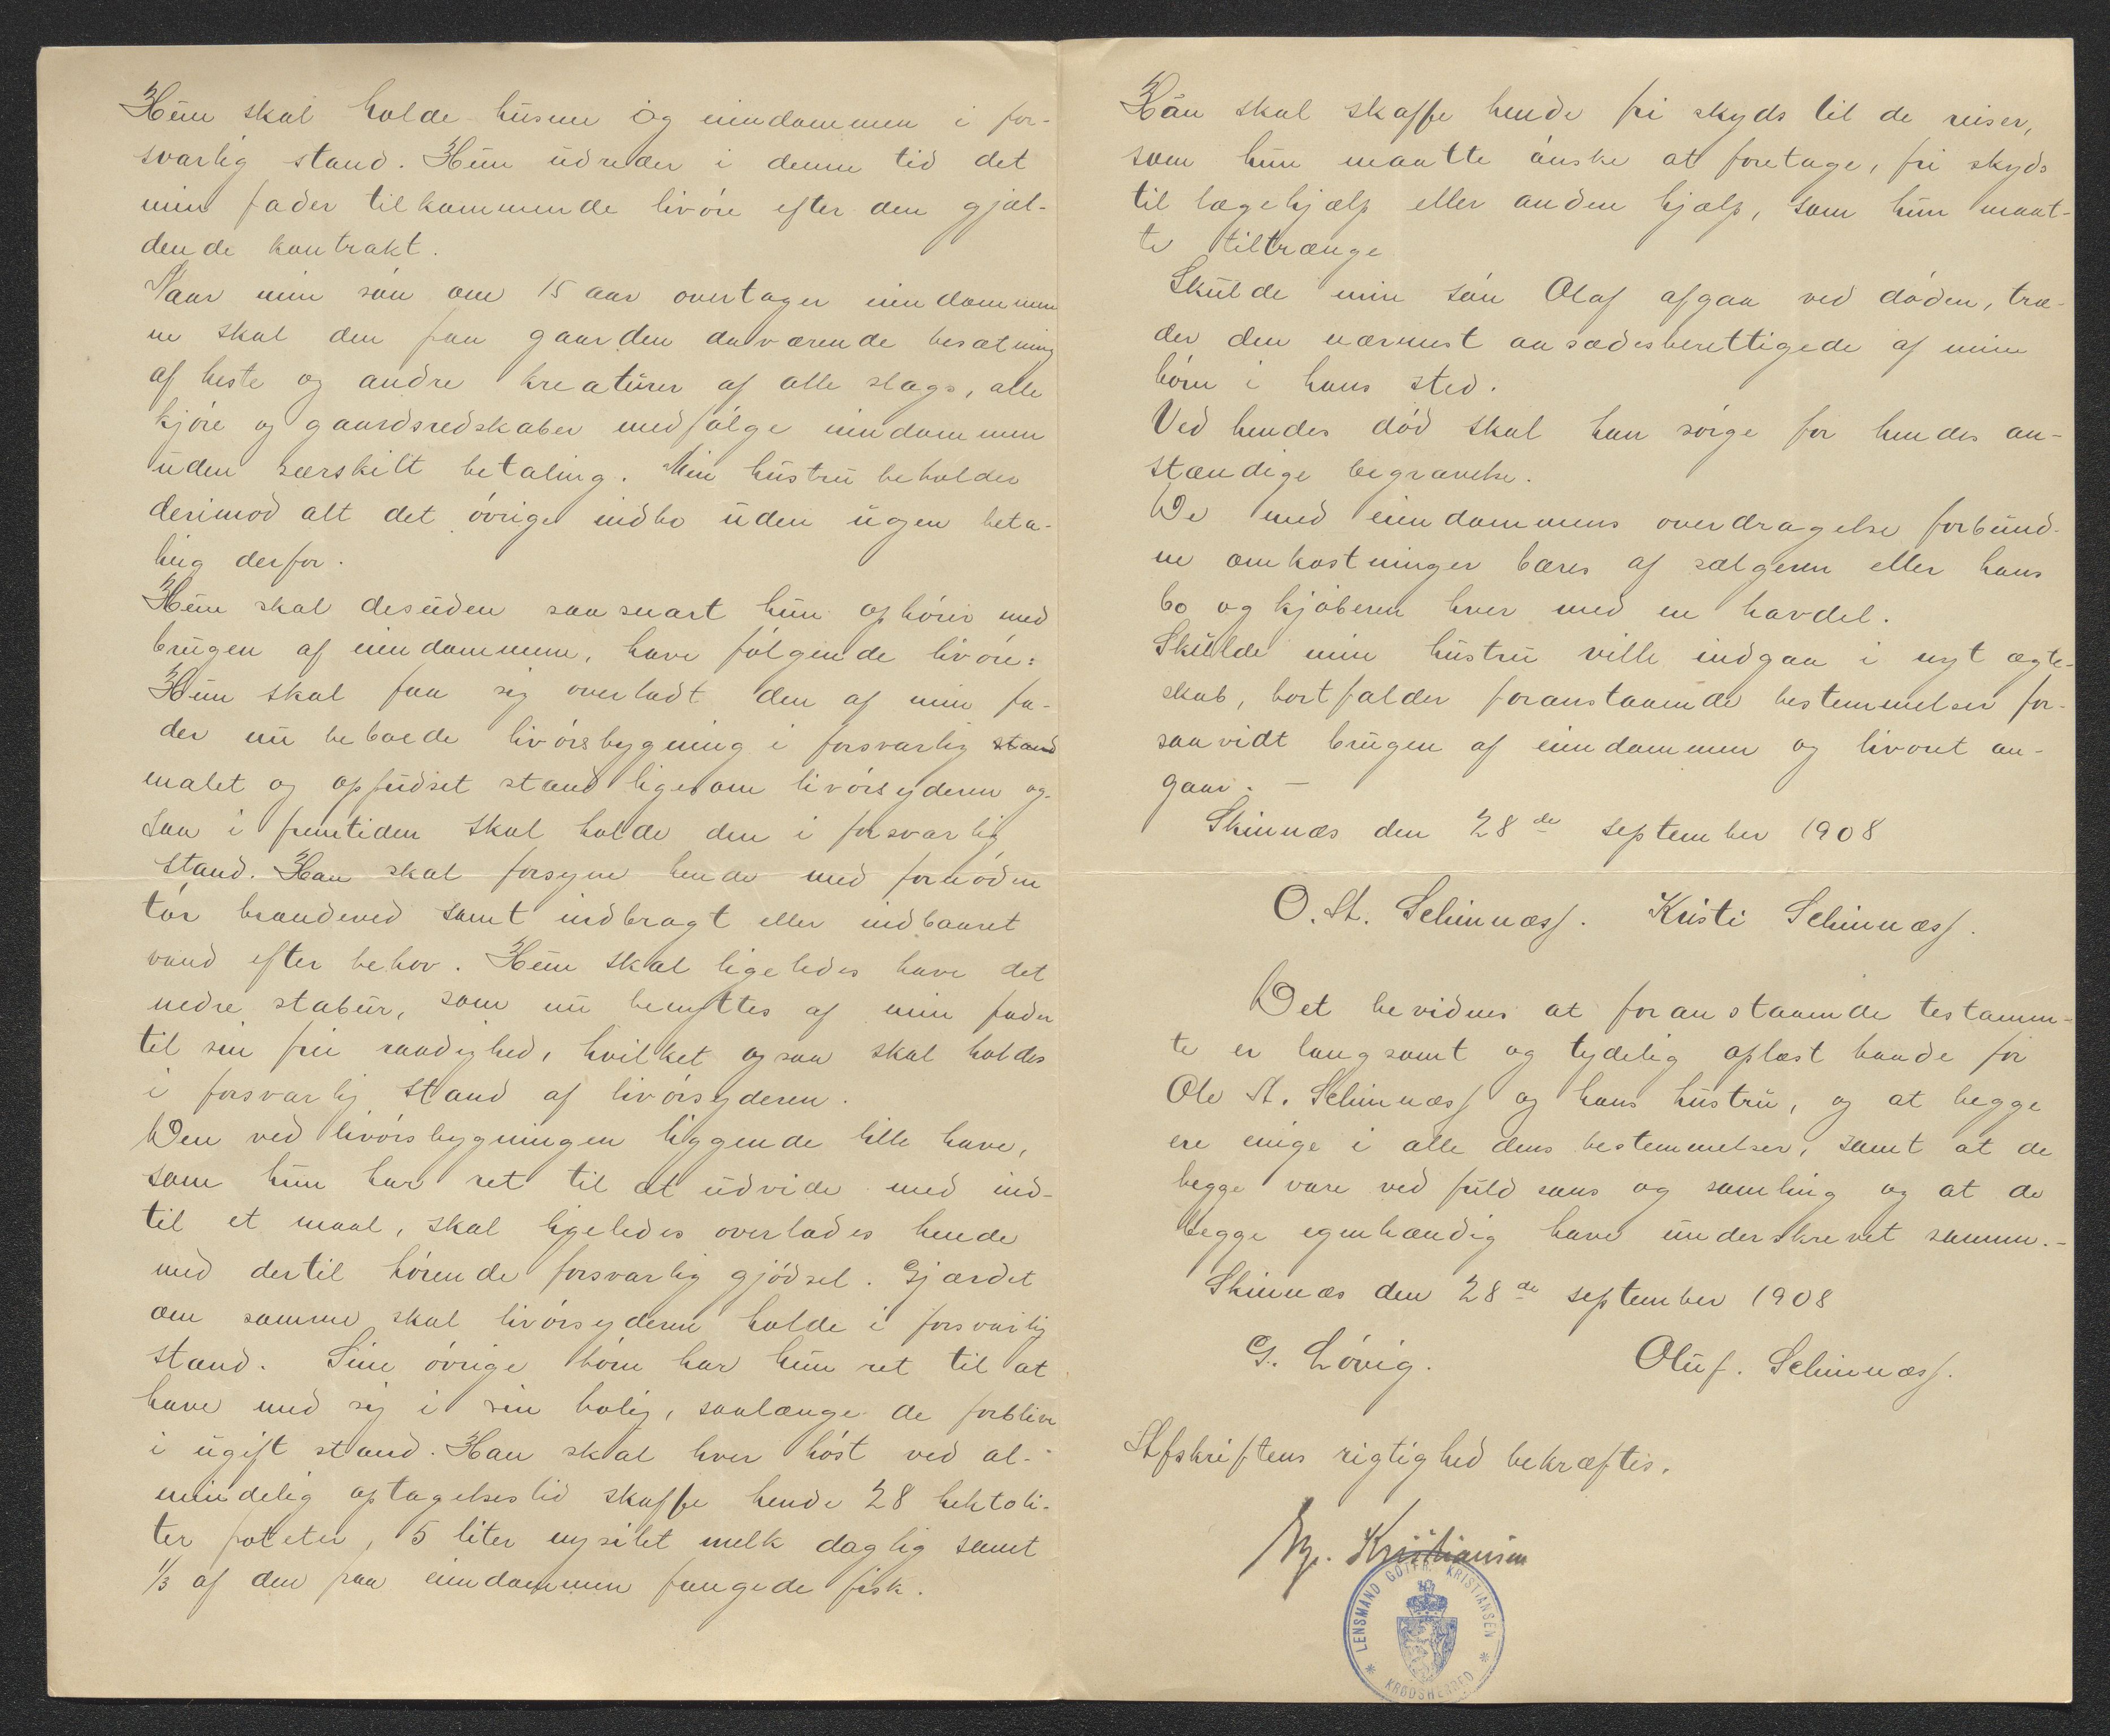 Hun skal holde husene og eiendommen i for-
svarlig stand. Hun udreder i denne tid det
min fader tilkommende livöre efter den gjæl-
dende kontrakt.
Naar min sön om 15 aar overtager eiendommen
ne skal den paa gaarden daværende besætning
af heste og andre kreaturer af alle slags, alle
kjöre og gaardsredskaber medfölge eiendommen
uden særskilt betaling. Min hustru beholder
derimod alt det övrige indbo uden ugen beta-
ling derfor.
Hun skal desuden saasnart hun ophörer med
brugen af eiendommen, have fölgende livöre:
Hun skal faa sig overladt den af min fa-
der nu beboede livörsbygning i forsvarlig stand
malet og oppudset stand ligesom livörsyderen og-
saa i fremtiden skal holde den i forsvarlig
stand. Han skal forsyne hende med fornöden
tör brændeved samt indbragt eller indbaaret
vand efter behov. Hun skal ligeledes have det
nedre stabur, som nu benyttes af min fader
til sin frie raadighed, hvilket ogsaa skal holdes
i forsvarlig stand af livörsyderen.
Den ved livörsbygningen liggende lille have,
som hun har ret til at udvide med ind-
til et maal, skal ligeledes overlades hende
med dertil hörende forsvarlig gjödsel. Gjærdet
om samme skal livörsyderen holde i forsvarlig
stand. Sine övrige börn har hun ret til at
have med sig i sin bolig, saalænge de forblive
i ugift stand. Han skal hver höst ved al-
mindelig optagelsestid skaffe hende 28 hektoli-
ter poteter, 5 liter nysilet melk daglig samt
1/3 af den paa eiendommen fangede fisk.
Han skal skaffe hende fri skyds til de reiser,
som hun maatte önske at foretage, fri skyds
til lægehjælp eller anden hjælp, som hun maat-
te tiltrænge
Skulde min sön Olaf afgaa ved döden, træ-
der den nærmest aasædesberettigede af mine
börn i hans sted.
Ved hendes död skal han sörge for hendes an-
stændige begravelse.
De med eiendommens overdragelse forbund-
ne omkostninger bæres af sælgeren eller hans
bo og kjöberen hver med en havdel.
Skulde min hustru ville indgaa i nyt ægte-
skab, bortfalder foranstaaende bestemmelser for-
saavidt brugen af eiendommen og livöret an-
gaar. –
Skinnæs den 28de september 1908
O. A. Schinnæss. Kristi Schinnæss.
Det bevidnes at foranstaaende testamen-
te er langsomt og tydelig oplæst baade for
Ole A. Schinnæss og hans hustru, og at begge
ere enige i alle dens bestemmelser, samt at de
begge vare ved fuld sans og samling og at de
begge egenhændig have underskrevet samme. –
Skinnæs den 28de september 1908
G. Lövig. Oluf. Schinnæss.
Afskriftens rigtighed bekræftes.
Kristiansen
LENSMAND GOTFR. KRISTIANSEN
KRØDSHERRED